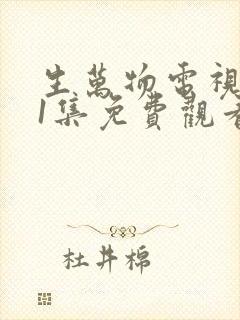 生萬物電視
1集免費觀看
杜井棉